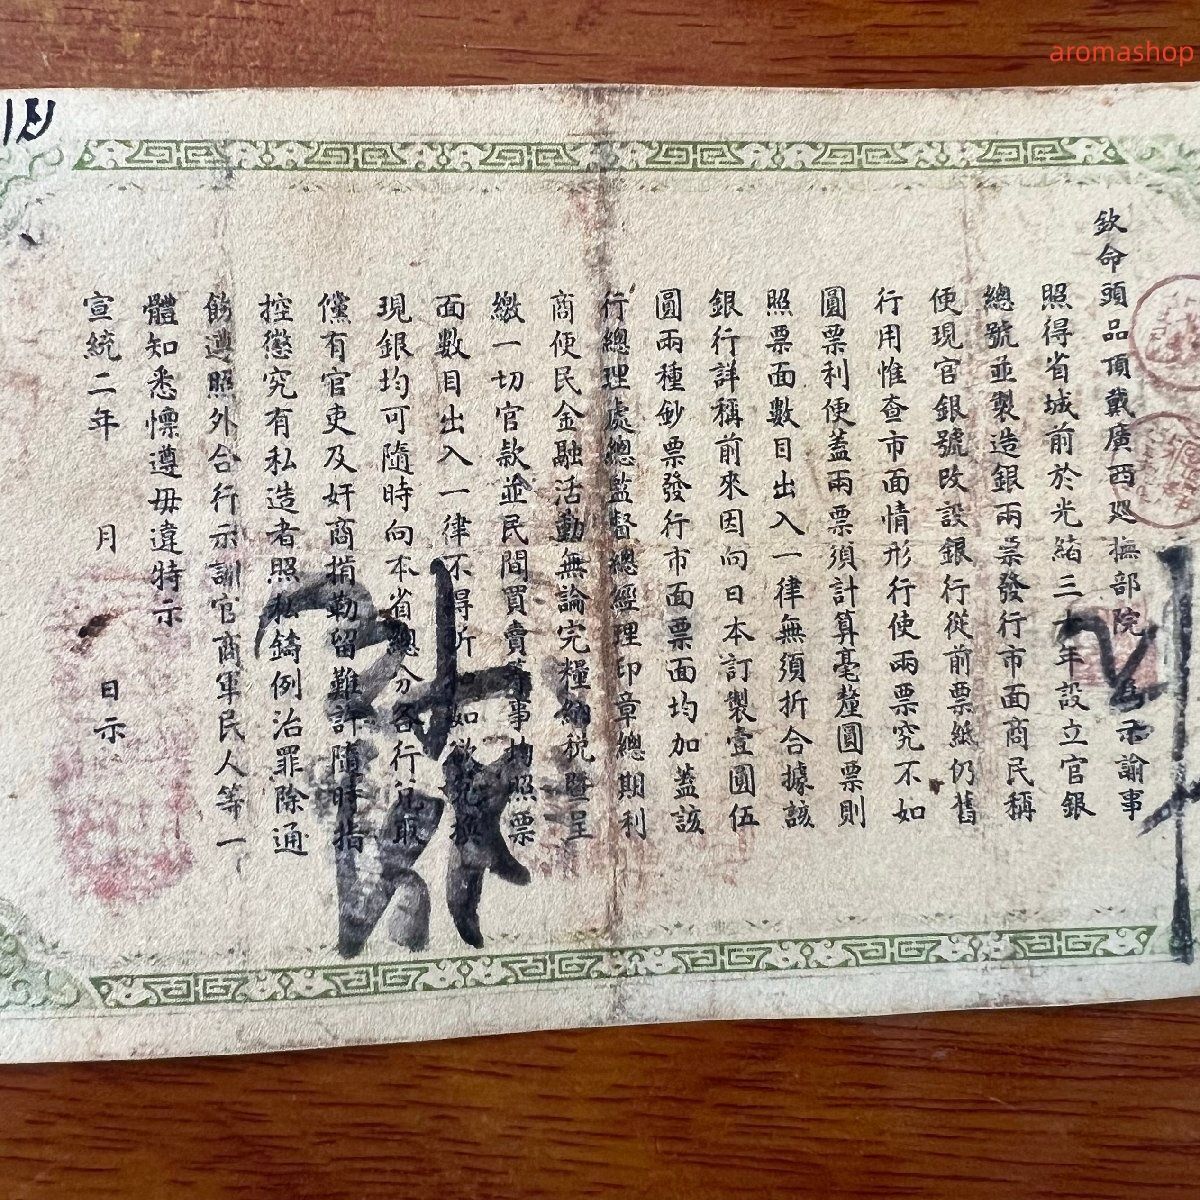 aromashop
欽命頭品頂戴廣西廵撫部院 為示諭事
照得省城前於光緒三十年設立官銀
總號並製造銀兩票發行市面商民稱
便現官銀號改設銀行從前票紙仍舊
行用惟查市面情形行使兩票究不如
圓票利便蓋兩票須計算毫釐圓票則
照票面數目出入一律無須折合據該
銀行詳稱前來因向日本訂製壹圓伍
圓兩種鈔票發行市面票面均加蓋該
行總理處總監督總經理印章總期利
商便民金融活動無論完糧納稅暨呈
繳一切官款並民間買賣等事均照票
面數目出入一律不得折 如欲兌換
現銀均可隨時向本省總分各行兌取
儻有官吏及奸商掯勒留難許隨時指
控懲究有私造者照私鑄例治罪除通
飭遵照外合行示諭官商軍民人等一
體知悉懍遵毋違特示
宣統二年 月 日示